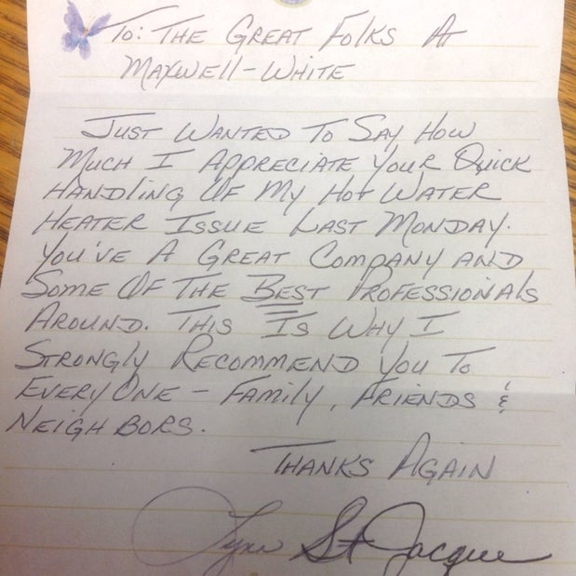 To: The Great Folks At
Maxwell-White
Just Wanted To Say How
Much I Appreciate Your Quick
Handling Of My Hot Water
Heater Issue Last Monday.
You've A Great Company And
Some Of The Best Professionals
Around. This Is Why I
Strongly Recommend You To
Everyone - Family, Friends &
Neighbors.
Thanks Again
St Jacque